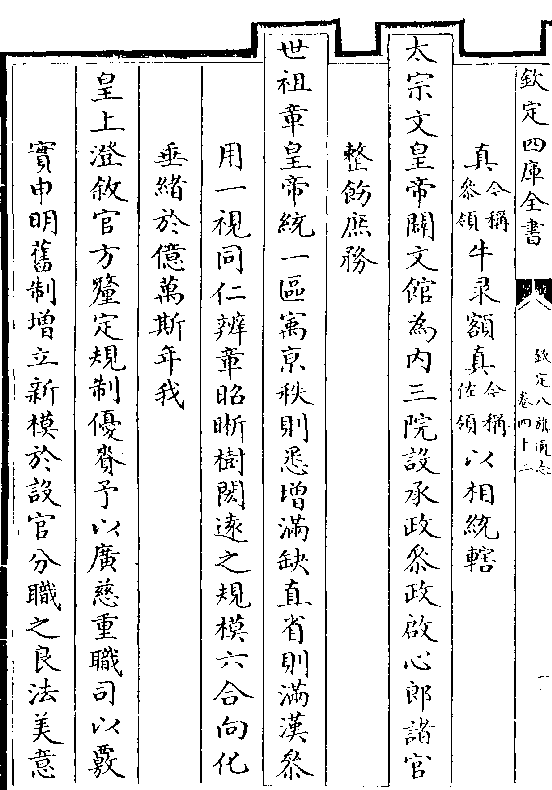 欽定四庫全書
欽定八旗通志
卷四十二
一
真今稱參領牛录額真今稱佐領以相統轄
太宗文皇帝闢文館為内三院設承政叅政啟心郎諸官
整飭庶務
世祖章皇帝統一區寓京秩則悉增滿缺直省則滿漢叅
用一視同仁辨章昭晰樹閎逺之規模六合向化
垂緒於億萬斯年我
皇上澄敘官方釐定規制優眷予以廣慈重職司以覈
實申明舊制增立新模於設官分職之良法美意